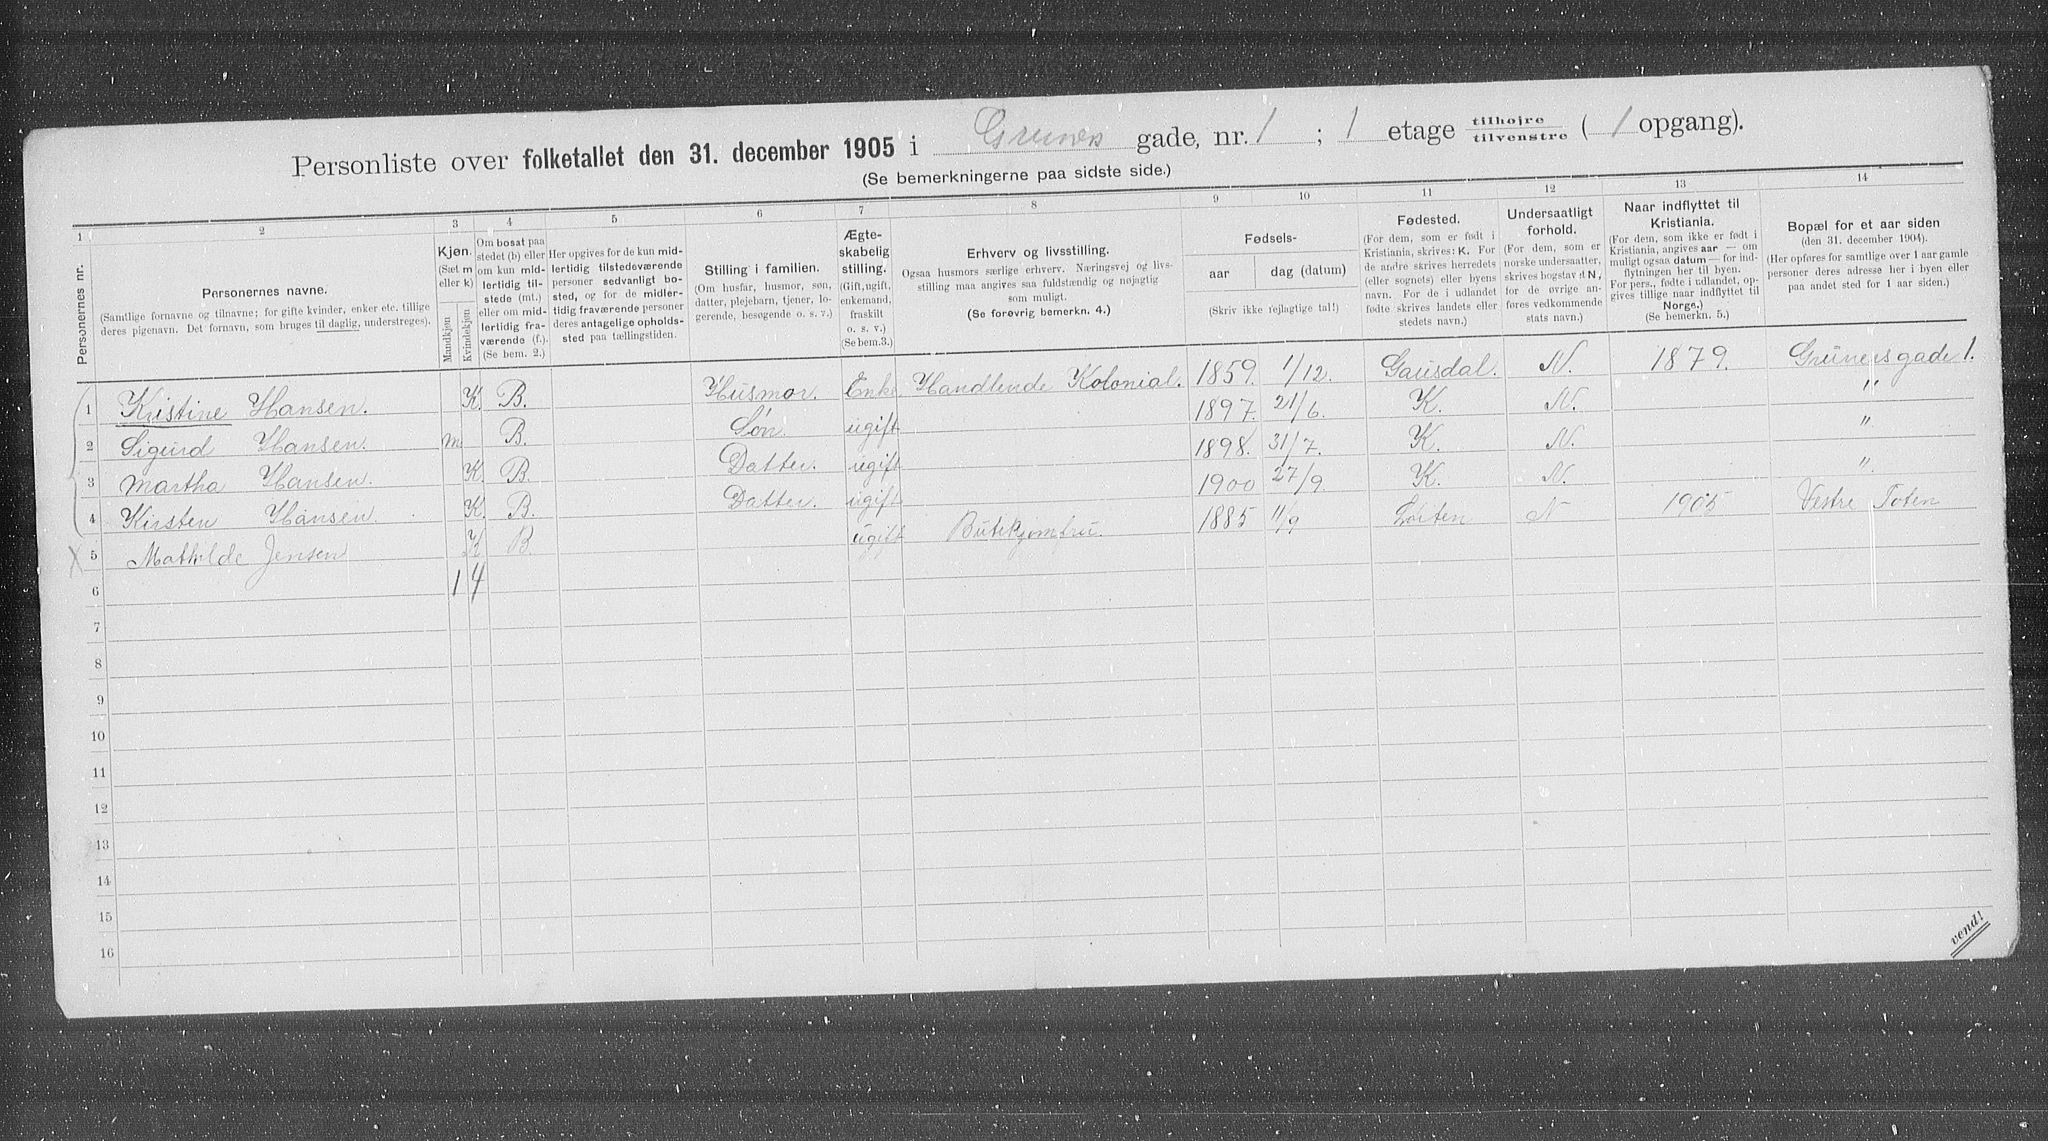 Personliste over folketallet den 31. december 1905 i Gruners gade, nr. 1 ; 1 etage tilhøjre/tilvenstre ( 1 opgang).
(Se bemerkningerne paa sidste side.)
1 2 3 4 5 6 7 8 9 10 11 12 13 14
Personernes nr.
Personernes navne.
(Samtlige fornavne og tilnavne; for gifte kvinder, enker etc. tillige
deres pigenavn. Det fornavn, som bruges til daglig, understreges).
Kjøn.
(Sæt m
eller k)
Mandkjøn
Kvindekjøn
Om bosat paa
stedet (b) eller
om kun mid-
lertidig til-
stede (mt.)
eller om mid-
lertidig fra-
værende (f.).
(Se bem. 2.)
Her opgives for de kun mid-
lertidig tilstedeværende
personer sedvanligt bo-
sted, og for de midler-
tidig fraværende personer
deres antagelige opholds-
sted paa tællingstiden.
Stilling i familien.
(Om husfar, husmor, søn,
datter, plejebarn, tjener, lo-
gerende, besøgende o. s. v.)
Ægte-
skabelig
stilling.
(Gift, ugift,
enkemand,
fraskilt
o. s. v.)
(Se bem. 3.)
Erhverv og livsstilling.
Ogsaa husmors særlige erhverv. Næringsvej og livs-
stilling maa angives saa fuldstændig og nøjagtig
som muligt.
(Se forøvrig bemerkn. 4.)
Fødsels-
aar
dag (datum)
(Skriv ikke fejlagtige tal!)
Fødested.
(For dem, som er født i
Kristiania, skrives: K. For
de andre skrives herredets
(eller sognets) eller byens
navn. For de i udlandet
fødte skrives landets eller
stedets navn.)
Undersaatligt
forhold.
(For dem, som er
norske undersaatter,
skrives bogstavet N,
for de øvrige an-
føres vedkommende
stats navn.)
Naar indflyttet til
Kristiania.
(For dem, som ikke er født i
Kristiania, angives aar — om
muligt ogsaa datum — for ind-
flytningen her til byen.
For pers., fødte i udlandet, op-
gives tillige naar indflyttet til
Norge.)
(Se bemerkn. 5.)
Bopæl for et aar siden
(den 31. december 1904).
(Her opføres for samtlige over 1 aar gamle
personer deres adresse her i byen eller
paa andet sted for 1 aar siden.)
1 Kristine Hansen. K. B. Husmor. Enke Handlende Kolonial. 1859. 1/12. Gausdal. N. 1879. Grünersgade 1.
2 Sigurd Hansen. m B. Søn. ugift 1897. 21/6. K. N. "
3 Martha Hansen. K. B. Datter. ugift 1898. 31/7. K. N. "
4 Kirsten Hansen. K. B. Datter. ugift 1900 27/9. K. N. "
5 Mathilde Jensen K B. ugift Butikjomfru. 1885 11/9 Løiten N 1905 Vestre Toten
6 1 4
7
8
9
10
11
12
13
14
15
16
vend!